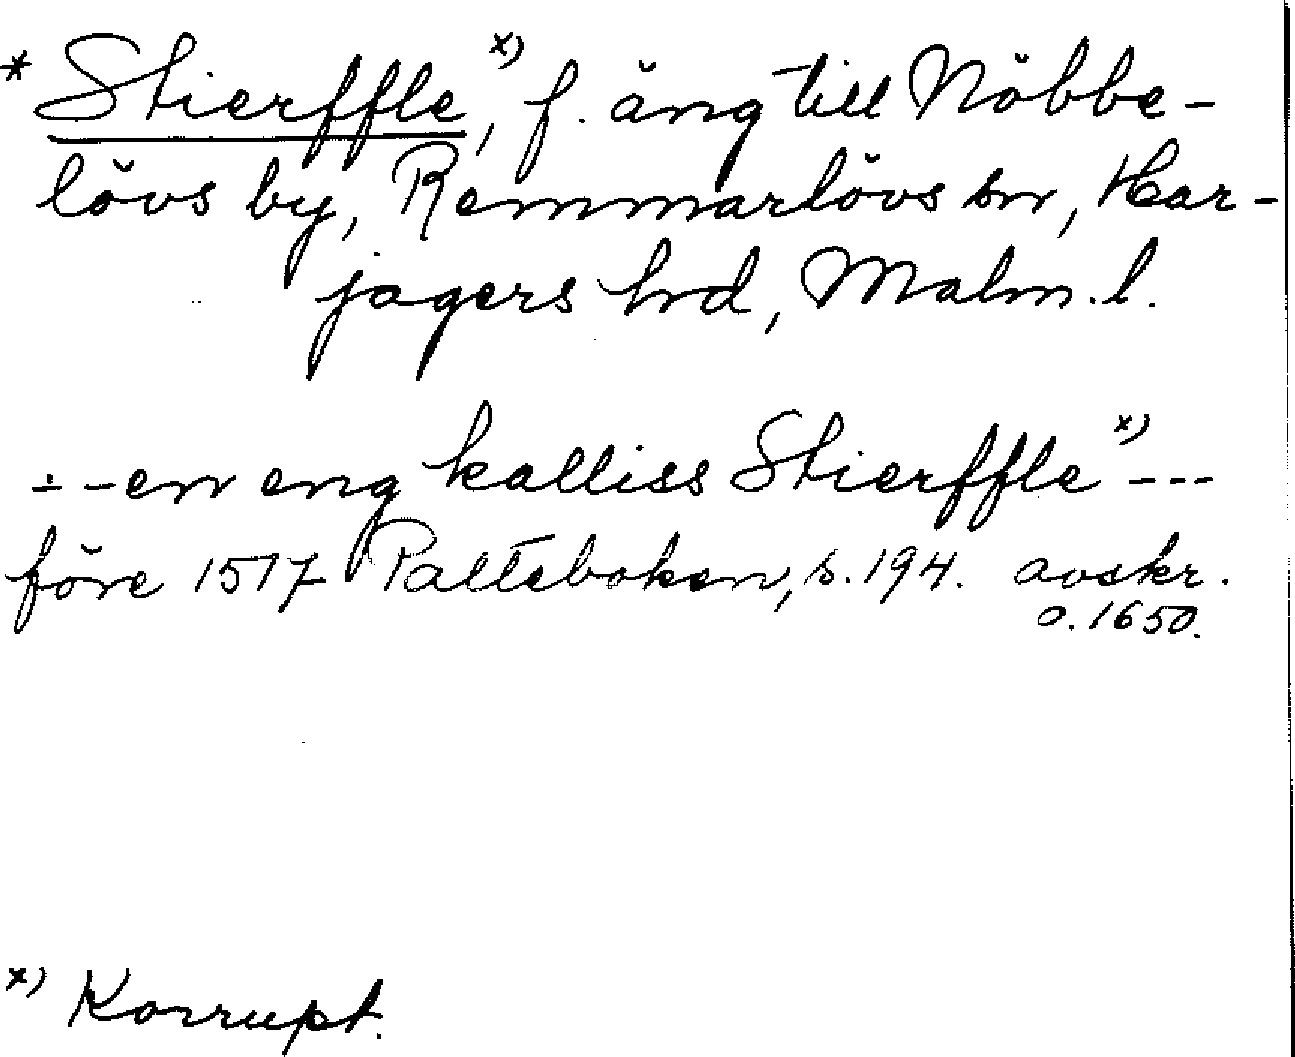 * Stierffle,x) f. äng till Nöbbe-
lövs by, Remmarlövs sn, Har-
jagers hd, Malm. l.
- - en eng kalliss Stierfflex) - - -
före 1517 Palteboken, s. 194. avskr.
o. 1650.
x) Korrupt.